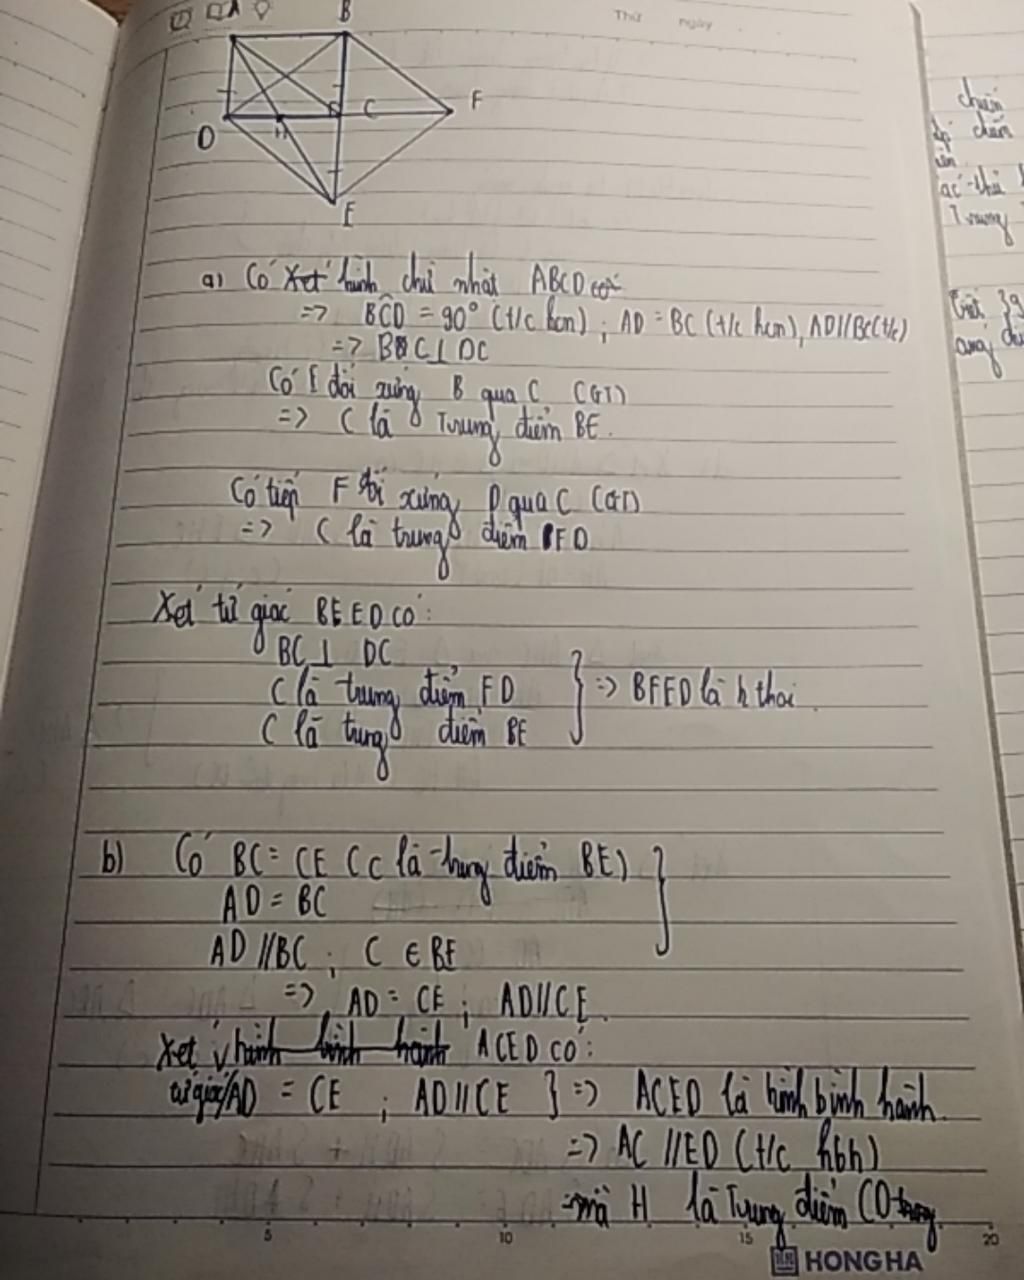 B
Thứ ngày
D
H
C
F
E
a) Có Xét hình chữ nhật ABCD có
=> BĈD = 90° (t/c hcn) ; AD = BC (t/c hcn), AD//BC(t/c)
=> BC⊥DC
Có E đối xứng B qua C (GT)
=> C là Trung điểm BE.
Có tiếp F đối xứng D qua C (GT)
=> C là trung điểm FD
Xét tứ giác BEED có:
BC⊥ DC
C là trung điểm FD } => BFED là h thoi.
C là trung điểm BE
b) Có BC = CE (C là trung điểm BE) }
AD = BC
AD //BC ; C ∈ BE
=> AD = CE ; AD//CE.
Xét hình bình hành ACED có:
tứ giác/AD = CE ; AD//CE } => ACED là hình bình hành.
=> AC //ED (t/c hbh)
mà H là Trung điểm CD trung
5 10 15 20
HONG HA